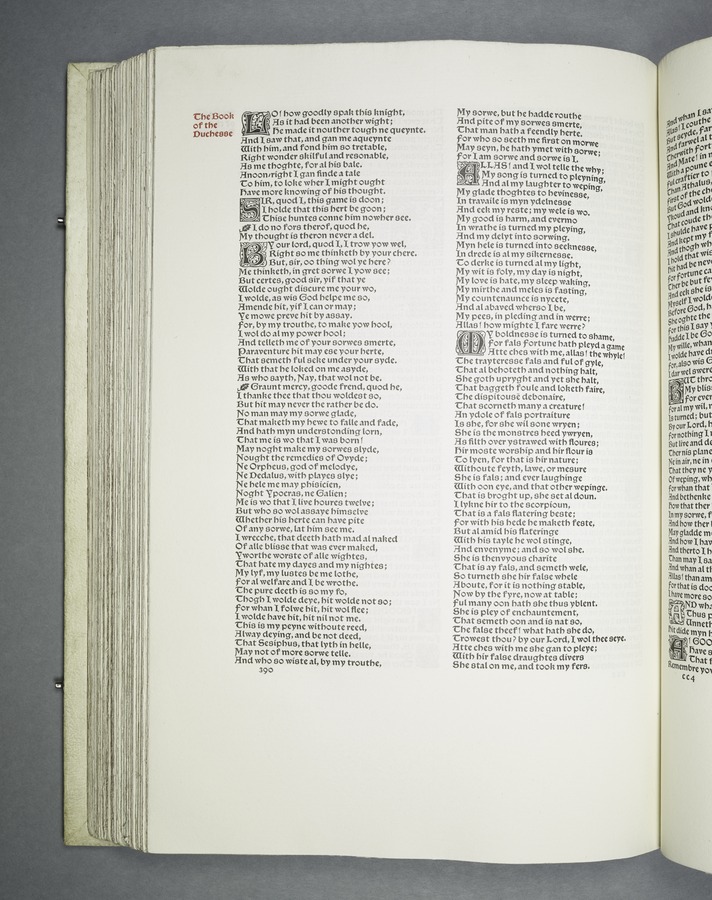 The Book
of the
Duchesse
LO! how goodly spak this knight,
As it had been another wight;
He made it nouther tough ne queynte.
And I saw that, and gan me aqueynte
With him, and fond him so tretable,
Right wonder skilful and resonable,
As me thoghte, for al his bale.
Anoon-right I gan finde a tale
To him, to loke wher I might ought
Have more knowing of his thought.
SIR, quod I, this game is doon;
I holde that this hert be goon;
Thise huntes conne him nowher see.
I do no fors therof, quod he,
My thought is theron never a del.
BY our lord, quod I, I trow yow wel,
Right so me thinketh by your chere.
But, sir, oo thing wol ye here?
Me thinketh, in gret sorwe I yow see;
But certes, good sir, yif that ye
Wolde ought discure me your wo,
I wolde, as wis God helpe me so,
Amende hit, yif I can or may;
Ye mowe preve hit by assay.
For, by my trouthe, to make yow hool,
I wol do al my power hool;
And telleth me of your sorwes smerte,
Paraventure hit may ese your herte,
That semeth ful seke under your syde.
With that he loked on me asyde,
As who sayth, Nay, that wol not be.
Graunt mercy, goode frend, quod he,
I thanke thee that thou woldest so,
But hit may never the rather be do.
No man may my sorwe glade,
That maketh my hewe to falle and fade,
And hath myn understonding lorn,
That me is wo that I was born!
May noght make my sorwes slyde,
Nought the remedies of Ovyde;
Ne Orpheus, god of melodye,
Ne Dedalus, with playes slye;
Ne hele me may phisicien,
Noght Ypocras, ne Galien;
Me is wo that I live houres twelve;
But who so wol assaye himselve
Whether his herte can have pite
Of any sorwe, lat him see me.
I wrecche, that deeth hath mad al naked
Of alle blisse that was ever maked,
Yworthe worste of alle wightes,
That hate my dayes and my nightes;
My lyf, my lustes be me lothe,
For al welfare and I be wrothe.
The pure deeth is so my fo,
Thogh I wolde deye, hit wolde not so;
For whan I folwe hit, hit wol flee;
I wolde have hit, hit nil not me.
This is my peyne withoute reed,
Alway deying, and be not deed,
That Sesiphus, that lyth in helle,
May not of more sorwe telle.
And who so wiste al, by my trouthe,
290
My sorwe, but he hadde routhe
And pite of my sorwes smerte,
That man hath a feendly herte.
For who so seeth me first on morwe
May seyn, he hath ymet with sorwe;
For I am sorwe and sorwe is I.
ALLAS! and I wol telle the why;
My song is turned to pleyning,
And al my laughter to weping,
My glade thoghtes to hevinesse,
In travaile is myn ydelnesse
And eek my reste; my wele is wo.
My good is harm, and evermo
In wrathe is turned my pleying,
And my delyt into sorwing.
Myn hele is turned into seeknesse,
In drede is al my sikernesse.
To derke is turned al my light,
My wit is foly, my day is night,
My love is hate, my sleep waking,
My mirthe and meles is fasting,
My countenaunce is nycete,
And al abaved wherso I be,
My pees, in pleding and in werre;
Allas! how mighte I fare werre?
MY boldnesse is turned to shame,
For fals Fortune hath pleyd a game
Atte ches with me, allas! the whyle!
The trayteresse fals and ful of gyle,
That al behoteth and nothing halt,
She goth upryght and yet she halt,
That baggeth foule and loketh faire,
The dispitouse debonaire,
That scorneth many a creature!
An ydole of fals portraiture
Is she, for she wil sone wryen;
She is the monstres heed ywryen,
As filth over ystrawed with floures;
Hir moste worship and hir flour is
To lyen, for that is hir nature;
Withoute feyth, lawe, or mesure
She is fals; and ever laughinge
With oon eye, and that other wepinge.
That is broght up, she set al doun.
I lykne hir to the scorpioun,
That is a fals flatering beste;
For with his hede he maketh feste,
But al amid his flateringe
With his tayle he wol stinge,
And envenyme; and so wol she.
She is thenvyous charite
That is ay fals, and semeth wele,
So turneth she hir false whele
Aboute, for it is nothing stable,
Now by the fyre, now at table;
Ful many oon hath she thus yblent.
She is pley of enchauntement,
That semeth oon and is nat so,
The false theef! what hath she do,
Trowest thou? by our Lord, I wol thee seye.
Atte ches with me she gan to pleye;
With hir false draughtes divers
She stal on me, and took my fers.
cc4